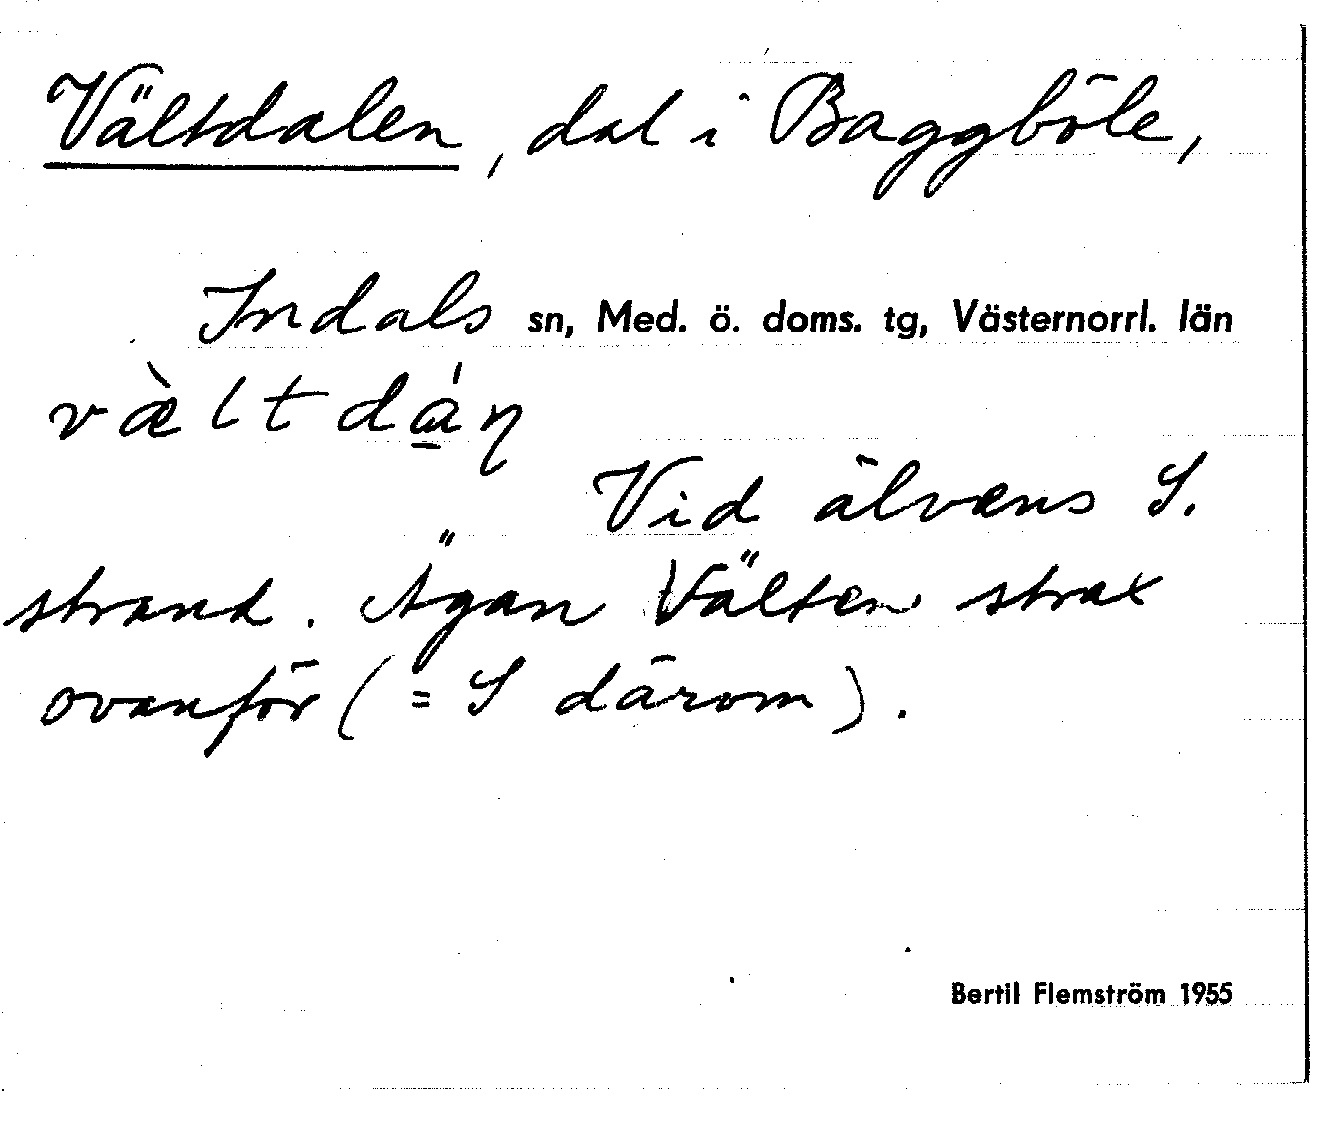 Vältdalen, dal i Baggböle,
Indals sn, Med. ö. doms. tg, Västernorrl. län
væ̀ltdá̱ṇ
Vid älvens S.
strand. Ägan Välten strax
ovanför (= S därom).
Bertil Flemström 1955